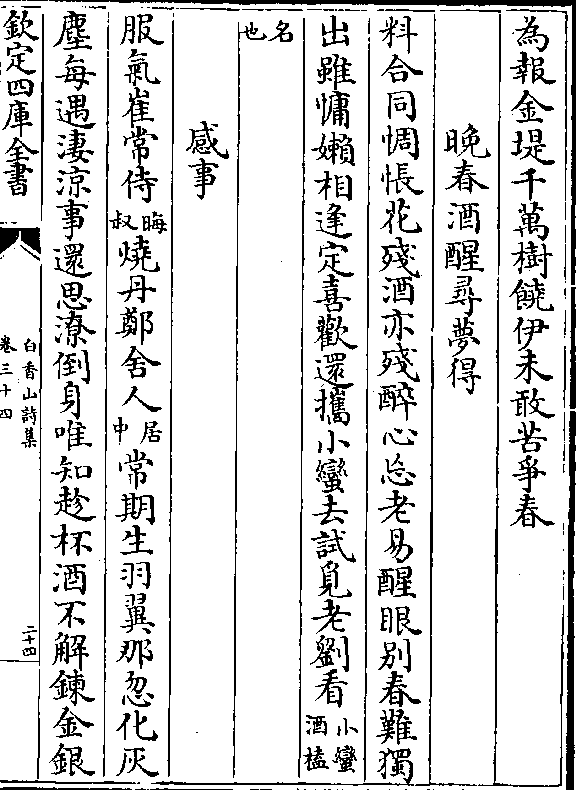 為報金堤千萬樹饒伊未敢苦爭春
晩春酒醒尋夢得
料合同惆悵花殘酒亦殘醉心忘老易醒眼别春難獨
出雖慵嬾相逢定喜歡還攜小蠻去試覓老劉看小蠻酒榼
名也
感事
服氣崔常侍晦叔燒丹鄭舍人居中常期生羽翼那忽化灰
塵每遇淒涼事還思潦倒身唯知趁杯酒不解鍊金銀
欽定四庫全書
白香山詩集
卷三十四
二十四